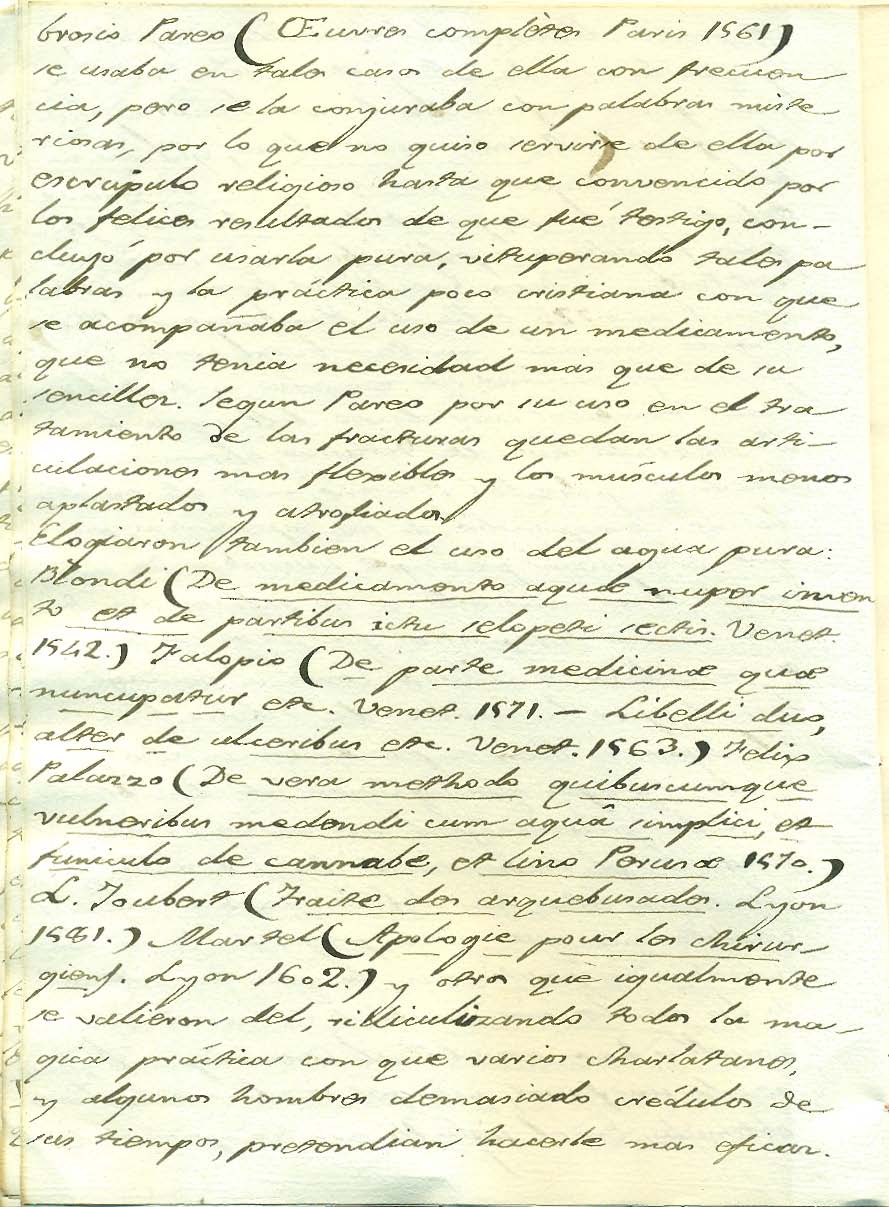 brosio Pareo (Œuvres complètes Paris 1561)
se usaba en tales casos de ella con frecuen
cia, pero se la conjuraba con palabras miste
riosas, por lo que no quiso servirse de ella por
escrúpulo religioso hasta que convencido por
los felices resultados de que fué testigo, con-
cluyó por usarla pura, vituperando tales pa
labras y la práctica poco cristiana con que
se acompañaba el uso de un medicamento,
que no tenia necesidad mas que de su
sencillez. Segun Pareo por su uso en el tra
tamiento de las fracturas quedan las arti-
culaciones mas flexibles y los músculos menos
aplastados y atrofiados.
Elogiaron tambien el uso del agua pura:
Blondi (De medicamento aquae nuper inven
to et de partibus ictu sclopeti sectis. Venet.
1542.) Falopio (De parte medicinæ quæ
nuncupatur etc. Venet. 1571. - Libelli duo,
alter de ulceribus etc. Venet. 1563.) Felix
Palazzo (De vera methodo quibuscumque
vulneribus medendi cum aquâ simplici, et
funiculo de cannabe, et lino Perusæ 1570.)
L. Joubert (Traite des arquebusades. Lyon
1581.) Martel (Apologie pour les chirur-
giens. Lyon 1602.) y otros que igualmente
se valieron del, ridiculizando todos la ma-
gica práctica con que varios charlatanes,
y algunos hombres demasiado crédulos de
sus tiempos, pretendian hacerle mas eficaz.